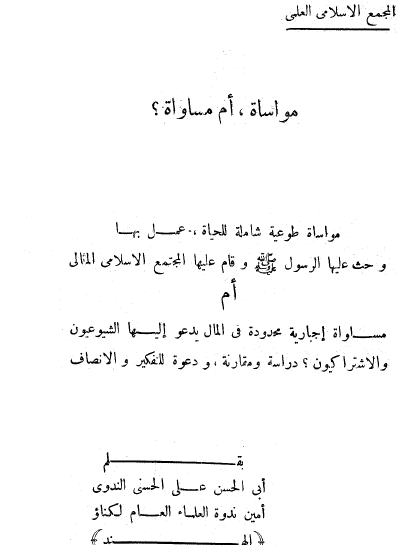 المجمع الاسلامى العلمى
مواساة ، أم مساواة ؟
مواساة طوعية شاملة للحياة ، عمـــل بهـــا
و حث عليها الرسول ﷺ و قام عليها المجتمع الاسلامى المثالى
أم
مســـاواة إجبارية محدودة فى المال يدعو إليـــها الشيوعيون
والاشتراكيون ؟ دراسة ومقارنة ، و دعوة للتفكير و الانصاف
بقـــــــلم
أبى الحسن عـــلى الحسنى الندوى
أمين ندوة العلماء العـــام لكناؤ
﴿ الهـــــــند ﴾